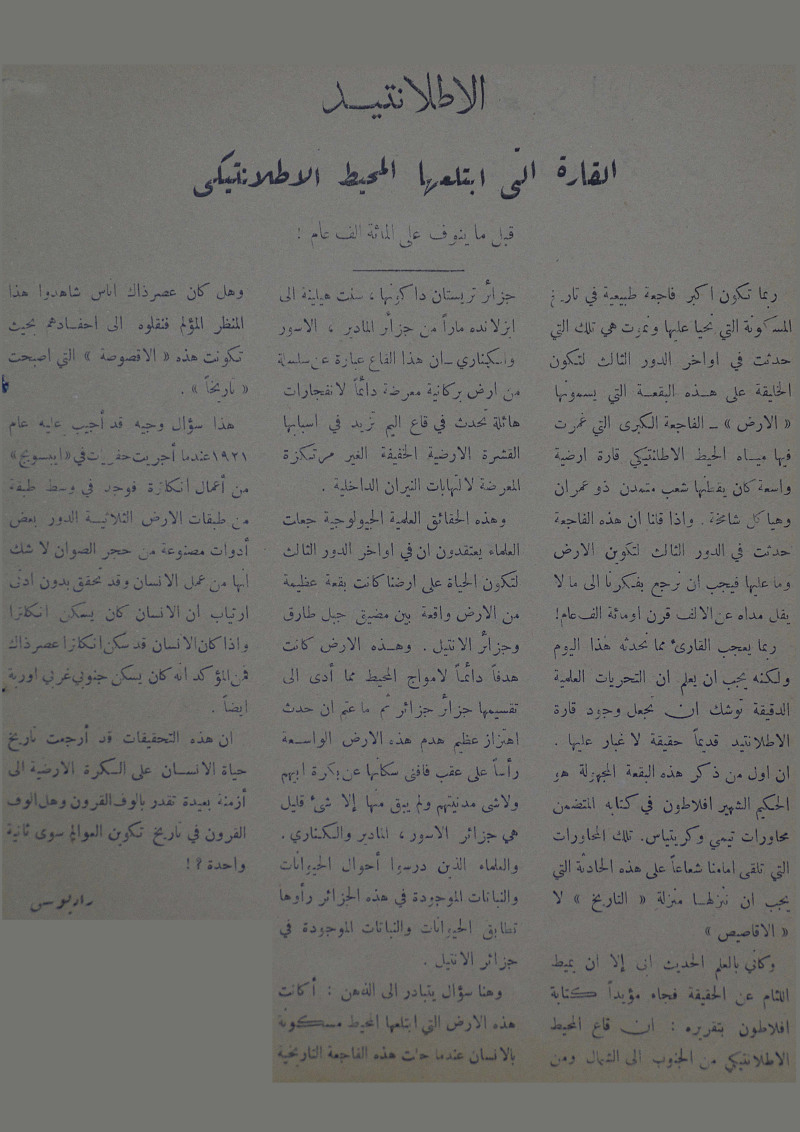 الاطلانتيد
القارة التي ابتلعها المحيط الاطلانتيكي
قبل ما ينوف على المائة الف عام !
ربما تكون اكبر فاجعة طبيعية في تاريخ
المسكونة التي نحيا عليها ونموت هي تلك التي
حدثت في اواخر الدور الثالث لتكون
الخليقة على هـذه البقعـة التي يسمونها
« الارض » ــ الفاجعة الكبرى التي غمرت
فيها ميـاه المحيط الاطلانتيكي قارة ارضية
واسعة كان يقطنها شعب متمدن ذو عمران
وهياكل شامخة . واذا قلنا ان هذه الفاجعة
حدثت في الدور الثالث لتكوين الارض
وما عليها فيجب ان نرجع بفكرنا الى ما لا
يقل مداه عن الالف قرن اومائة الف عام!
ربما يعجب القارئ مما نحدثه هذا اليوم
ولكنه يجب ان يعلم ان التحريات العلمية
الدقيقة توشك ان تجعل وجود قارة
الاطلانتيد قديماً حقيقة لا غبار عليها .
ان اول من ذكر هذه البقعة المجهولة هو
الحكيم الشهير افلاطون في كتابه المتضمن
محاورات تيمي وكريتياس. تلك المحاورات
التي تلقى امامنا شعاعاً على هذه الحادثة التي
يجب ان ننزلهـا منزلة « التاريخ » لا
« الاقاصيص »
وكأني بالعلم الحديث ابى إلا ان يميط
اللثام عن الحقيقة فجاء مؤيداً كتابة
افلاطون بتقريره : ان قاع المحيط
الاطلانتيكي من الجنوب الى الشمال ومن
جزائر تريستان داكونها ، سنت هيلينة الى
ايزلانده ماراً من جزائر المادير ، الاسور
والكناري ــ ان هذا القاع عبارة عن سلسلة
من ارض بركانية معرضة دائماً لانفجارات
هائلة تحدث في قاع اليم تزيد في اسبابها
القشرة الارضية الخفيفة الغير مرتكزة
المعرضة لالتهابات النيران الداخلية .
وهذه الحقائق العلمية الجيولوجية جعلت
العلماء يعتقدون ان في اواخر الدور الثالث
لتكون الحياة على ارضنا كانت بقعة عظيمة
من الارض واقعة بين مضيق جبل طارق
وجزائر الانتيل . وهـذه الارض كانت
هدفاً دائماً لامواج المحيط مما أدى الى
تقسيمها جزائر جزائر ثم ما عتم ان حدث
اهتزاز عظيم هدم هذه الارض الواسـعة
رأساً على عقب فافنى سكانها عن بكرة ابيهم
ولاشى مدنيتهم ولم يبق منها إلا شئ قليل
هي جزائر الاسور ، المادير والكناري .
والعلماء الذين درسوا أحوال الحيوانات
والنباتات الموجودة في هذه الجزائر رأوها
تطابق الحيوانات والنباتات الموجودة في
جزائر الانتيل .
وهنا سؤال يتبادر الى الذهن : أكانت
هذه الارض التي ابتلعها المحيط مسكونة
بالانسان عندما حلت هذه الفاجعة التاريخية
وهل كان عصرذاك اناس شاهدوا هذا
المنظر المؤلم فنقلوه الى احفـادهم بحيث
تكونت هذه « الاقصوصة » التي اصبحت
« تاريخاً » .
هذا سؤال وجيه قد أجيب عليه عام
١٩٢١ عندما أجريت حفريات في «ايبسويج»
من أعمال انكلترة فوجد في وسط طبقة
من طبقات الارض الثلاثيـة الدور بعض
أدوات مصنوعة من حجر الصوان لا شك
انها من عمل الانسان وقد تحقق بدون ادنى
ارتياب ان الانسان كان يسكن انكلترا
واذا كان الانسان قد سكن انكلترا عصرذاك
فمن المؤكد انه كان يسكن جنوبي غربي اوربة
ايضاً .
ان هذه التحقيقات قد أرجعت تاريخ
حياة الانسان على الكرة الارضية الى
أزمنة بعيدة تقدر بالوف القرون وهل الوف
القرون في تاريخ تكوين العوالم سوى ثانية
واحدة ؟ !
داريوس